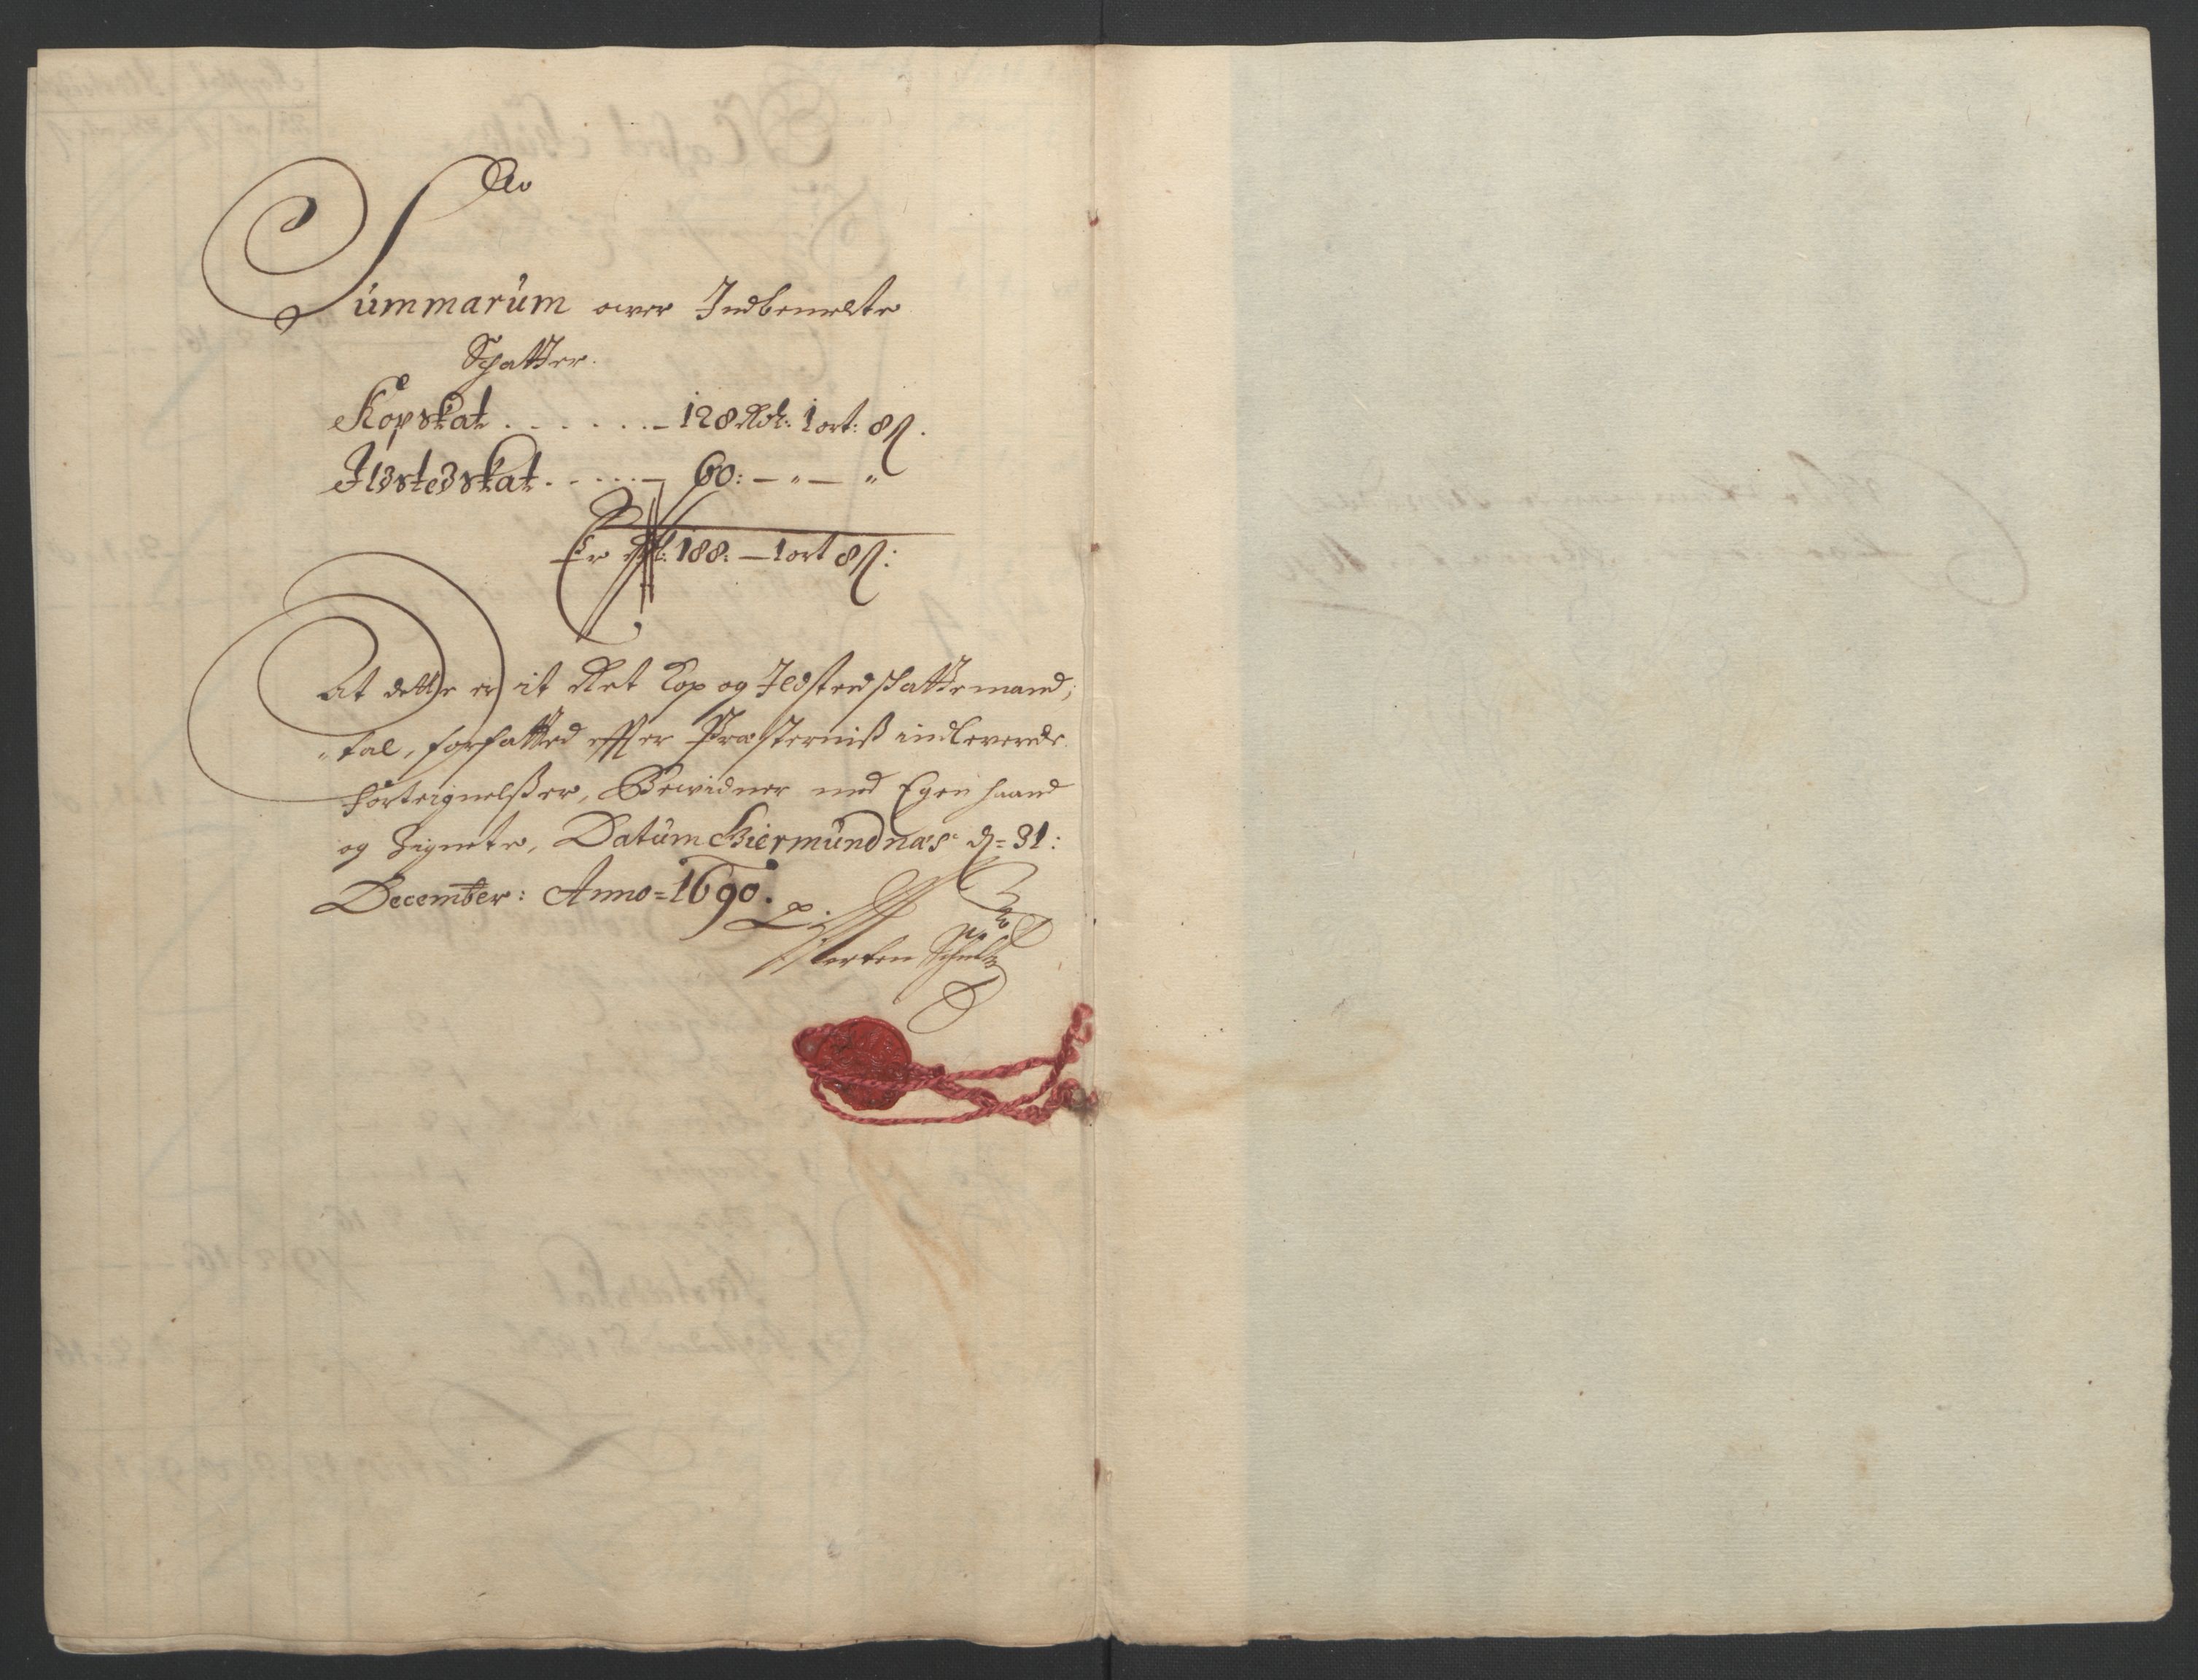 Summarum over Indbemelte
Skatter.
Kopskat . . . . . . . 128 Rdr: 1 ort: 8 ß.
Ildstedskat . . . . . 60: — " — "
Er Rdr: 188: — 1 ort 8 ß:
At dette er it Ret Kop og Ildstedskattemand,
"tal, forfatted effter Præsterniß indleverede
Forteignelsßer, Bewidner med Egen haand
og Zignete, Datum Biermundnæs d= 31:
December: Anno= 1690.
Morten Schultz